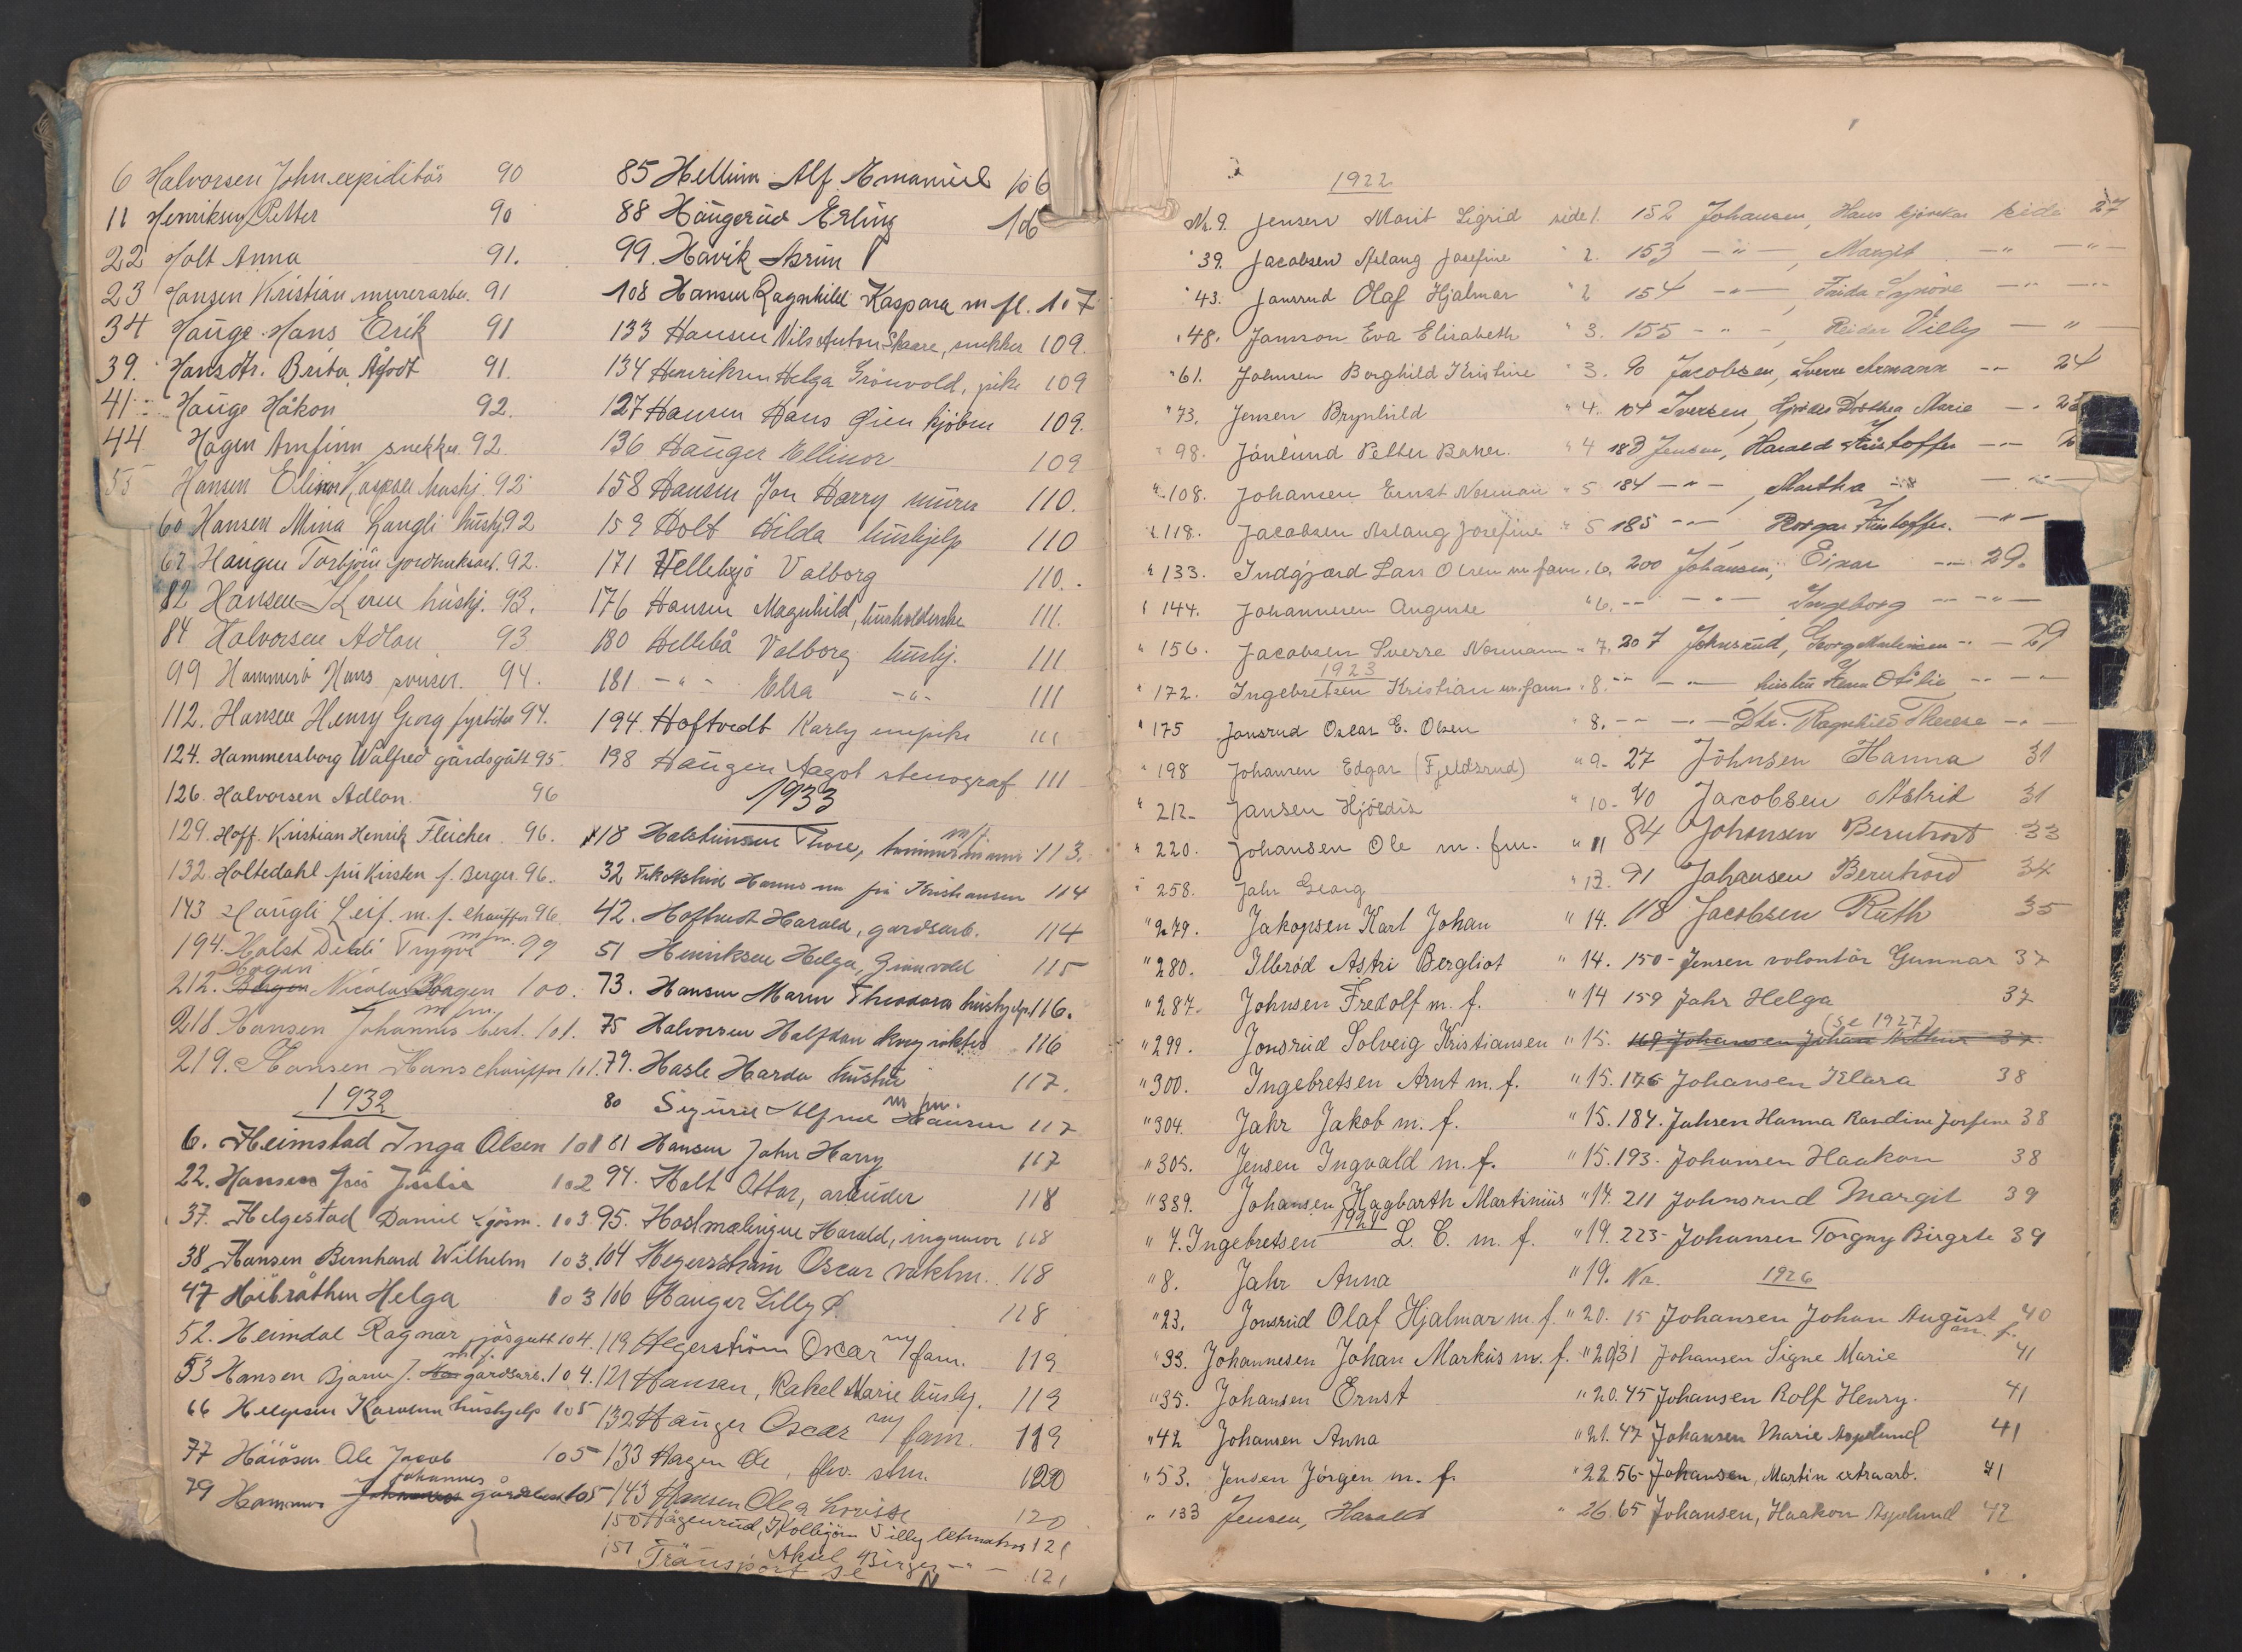 6 Halvorsen John expeditör 90
11 Henriksen Petter 90
22 Holt Anna 91.
23 Hansen Kristian murerarb. 91
34 Hauge Hans Erik 91
39. Hansdtr. Brita 91.
41 Hauge Håkon 92.
44 Hagen Arnfinn snekker 92.
55 Hansen hushj. 92
60 Hansen Mina Langli hushj. 92
62 Haugen Torbjörn 92.
82 Hansen Karen hushj. 93.
84 Halvorsen Adlon 93
99 Hammerö Hans 94.
112. Hansen Henry Georg fyrböter 94.
124. Hammersborg Walfred gårdsgutt 95.
126. Halvorsen Adlon. 96
129. Hoff. Kristian Henrik Fleicher. 96.
132. Holtedahl fru Kirsten f. Berger. 96.
143 Haugli Leif. m. f. chauffør 96.
194. Holst Trygve m fm. 99
212. Hagen Nicolai 100.
218 Hansen Johannes m fm. best. 101.
219. Hansen Hans chauffør 101.
1932
6. Heimstad Inga Olsen 101
22. Hansen fru Julie 102
37. Helgestad Daniel 103
38. Hansen Bernhard Wilhelm 103.
47 Höibråthen Helga 103
52. Heimdal Ragnar 104.
53 Hansen Bjarne J. gårdsarb. 104.
66 Helgesen hushjelp 105
77 Ole Jacob 105
79 Hammer Johannes 105
85 Hellum Alf Emanuel 106
88 Haugerud Erling 106
99. Hövik
108 Hansen Ragnhild Kaspara m fl. 107
133 Hansen Nils Anton Skaare, snekker 109.
134 Henriksen Helga Grönvold, pike 109
127 Hansen Hans Gien kjöbm 109.
136 Hauger Ellinor 109
158 Hansen Jon Harry murer 110.
159 Holt Hilda hushjelp 110
171 Valborg 110.
176 Hansen Magnhild, husholderske 111.
180 Hellebå Valborg hushj. 111
181 - " - Elsa - " - 111
194. Hoftvedt Karly 111
198 Haugen Aagot stenograf 111
1933
18 Halsteinsen Thore, m/f. tömmermann 113.
32 fru Kristiansen 114
42. Hoftvedt Harald, gardsarb. 114
51 Henriksen Helga, Grönvold 115
73. Hansen Maren Theodora hushjelp. 116.
75 Halvorsen Halfdan 116
79. Hasle Harda hustru 117.
80 Sigurd Alfred Hansen m fm. 117
81 Hansen John Harry 117
94. Holt Ottar, arbeider 118
95. Harald, ingeniør 118
104 Hegerström Oscar vaktm. 118
106 Hauger Lilly 118
119 Hegerström Oscar m/fam. 119
121 Hansen, Rakel Marie hushj. 119
132 Hauger Oscar m/fam. 119
133 Hagen Ole, 120
143 Hansen Olga Lovise 120
150 Hagenrud, Kolbjörn Villy 121
151 Aksel Birger - " - 121
Transport se N
1922
Nr. 9. Jensen Marit Sigrid side 1.
" 39. Jacobsen Aslaug Josefine " 2.
" 43. Jansrud Olaf Hjalmar " 2
" 48. Jansson Eva Elisabeth " 3.
" 61. Johnsen Borghild Kristine " 3.
" 73. Jensen Brynhild " 4.
" 98. Jönlund Petter Baker. " 4
" 108. Johansen Ernst Normann " 5
" 118. Jacobsen Aslaug Josefine " 5
" 133. Indgjærd Lars Olsen m fam. 6.
" 144. Johannesen Auguste " 6.
" 156. Jacobsen Sverre Normann " 7.
1923
" 172. Ingebretsen Kristian m. fam. " 8.
" 175 Jonsrud Oscar E. Olsen " 8.
" 198 Johansen Edgar (Fjeldsrud) " 9.
" 212 Jansen Hjördis " 10.
" 220. Johansen Ole m. fm. " 11
" 258. Jahr Georg " 13.
" 279. Jakopsen Karl Johan " 14.
" 280. Ilbröd Astri Bergliot " 14.
" 287. Johnsen Fredolf m. f. " 14
" 299. Jonsrud Solveig Kristiansen " 15.
" 300. Ingebretsen Arnt m. f. " 15.
" 304. Jahr Jakob m. f. " 15.
" 305. Jensen Ingvald m. f. " 15.
" 339. Johansen Hagbarth Martinius " 17.
1924
" 7. Ingebretsen L. C. m. f. " 19.
" 8. Jahr Anna " 19.
" 23. Jonsrud Olaf Hjalmar m. f. " 20.
" 33. Johannesen Johan Markus m. f. " 20
" 35. Johansen Ernst " 20.
" 42 Johansen Anna " 21.
" 53. Jensen Jörgen m. f. " 22
" 133 Jensen, Harald " 26.
152 Johansen, Hans side 27
153 - " - , Margit - " - - " -
154 - " - , Frida Synöve - " - - " -
155 - " - , Reidar Villy - " -
90 Jacobsen, Sverre Armann - " - 24
104 Iversen, Hjördis Dorthea Marie - "
183 Jensen, Harald Kristoffer - " -
184 - " - , Martha - " -
185 - " - Roygar Kristoffer. - " -
200 Johansen, Einar - " - 29.
- " - - " - Ingeborg - " - - " -
207 Johnsrud, Georg - " - 29
- " - - " - hustru Otilie - " - - " -
- " - - " - Dtr. Ragnhild Therese - " -
27 Johnsen Hanna 31
40 Jacobsen Astrid 31
84 Johansen Berntvord 33
91 Johansen Berntvord 34
118 Jacobsen Ruth 35
150 - Jensen volontör Gunnar 37
159 Jahr Helga 37
(se 1927)
169 Johansen Johan 37
176 Johansen Klara 38
184. Jahren Hanna Randine Josefine 38
193. Johansen Haakon 38
211 Johnsrud Margit 39
223 - Johansen Torgny Birgste 39
Nr. 1926
15 Johansen Johan August m. f. 40
31 Johansen Signe Marie 41
45 Johansen Rolf Henry. 41
47 Johansen Marie Aspelund 41
56 - Johansen, Martin extraarb. 41
65 Johansen, Haakon Aspelund 42